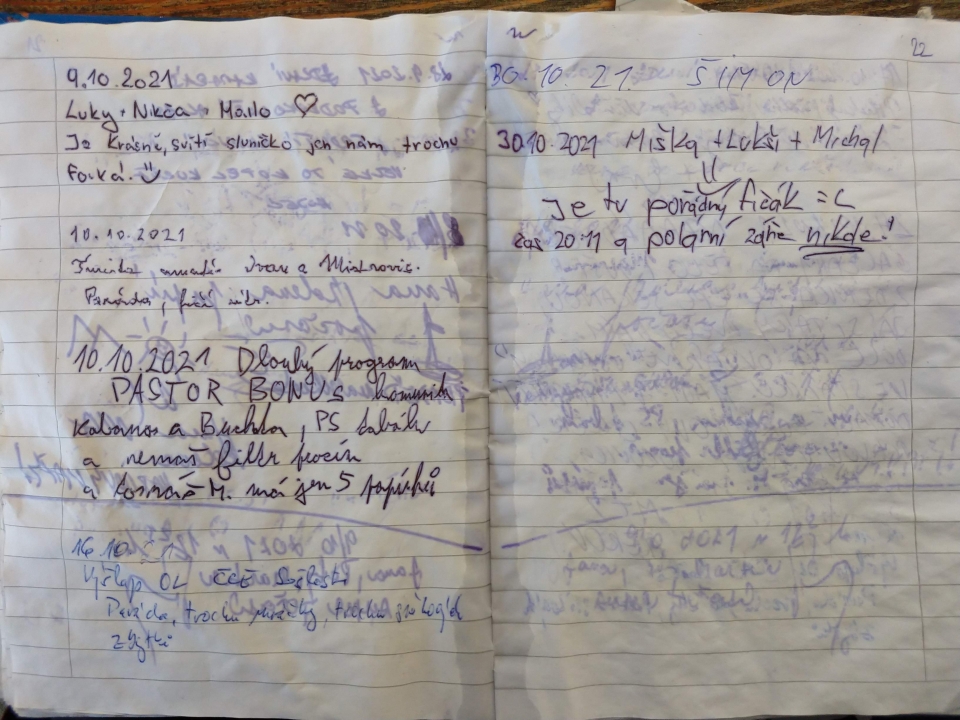 9.10.2021
Luky + Nikča + Mailo ♡
Je krásně, svítí sluníčko jen nám trochu
fouká. Ü
10.10.2021
Ivan a
Paráda, fučí vítr.
10.10.2021 Dlouhý program
PASTOR BONUS komunita
Kabanos a Buchta, PS tabák
a nemáš filtr prosím
a Tomáš M. má jen 5 papírků
16.10.
Výšlap
Paráda, trochu, trochu
22
30.10.21. ŠIMON
30.10.2021 Miška + Lukši + Michal
Je tu pořádný fičák =C
čas 20:11 a polární záře nikde!